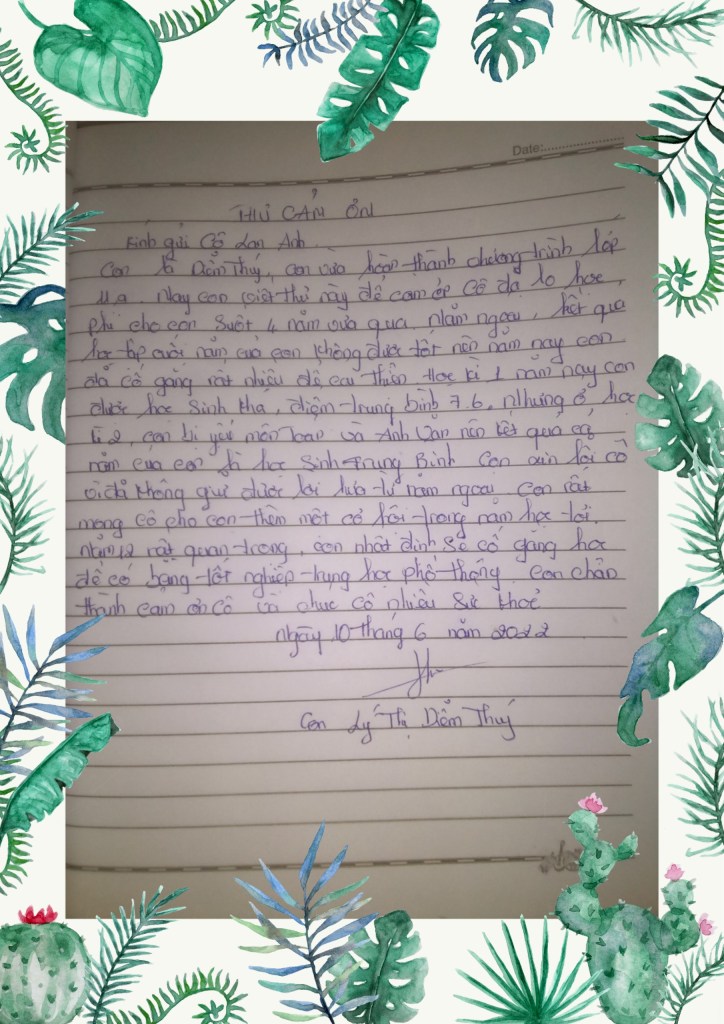 Date:
THƯ CẢM ƠN
Kính gửi Cô Lan Anh.
Con là Diễm Thuý, con vừa hoàn thành chương trình lớp
11a. Nay con viết thư này để cảm ơn Cô đã lo học
phí cho con suốt 4 năm vừa qua. Năm ngoái, kết quả
học tập cuối năm của con không được tốt nên năm nay con
đã cố gắng rất nhiều để cải thiện. Học kì 1 năm nay con
được học sinh khá, điểm trung bình 7.6, nhưng ở học
kì 2, con bị yếu môn toán và Anh Văn nên kết quả cả
năm của con là học sinh trung Bình. Con xin lỗi cô
vì đã không giữ được lời hứa từ năm ngoái. Con rất
mong cô cho con thêm một cơ hội trong năm học tới.
Năm 12 rất quan trọng, con nhất định sẽ cố gắng học
để có bằng tốt nghiệp trung học phổ thông. Con chân
thành cảm ơn cô và chúc cô nhiều sức khoẻ
ngày 10 tháng 6 năm 2022
Con Lý Thị Diễm Thuý